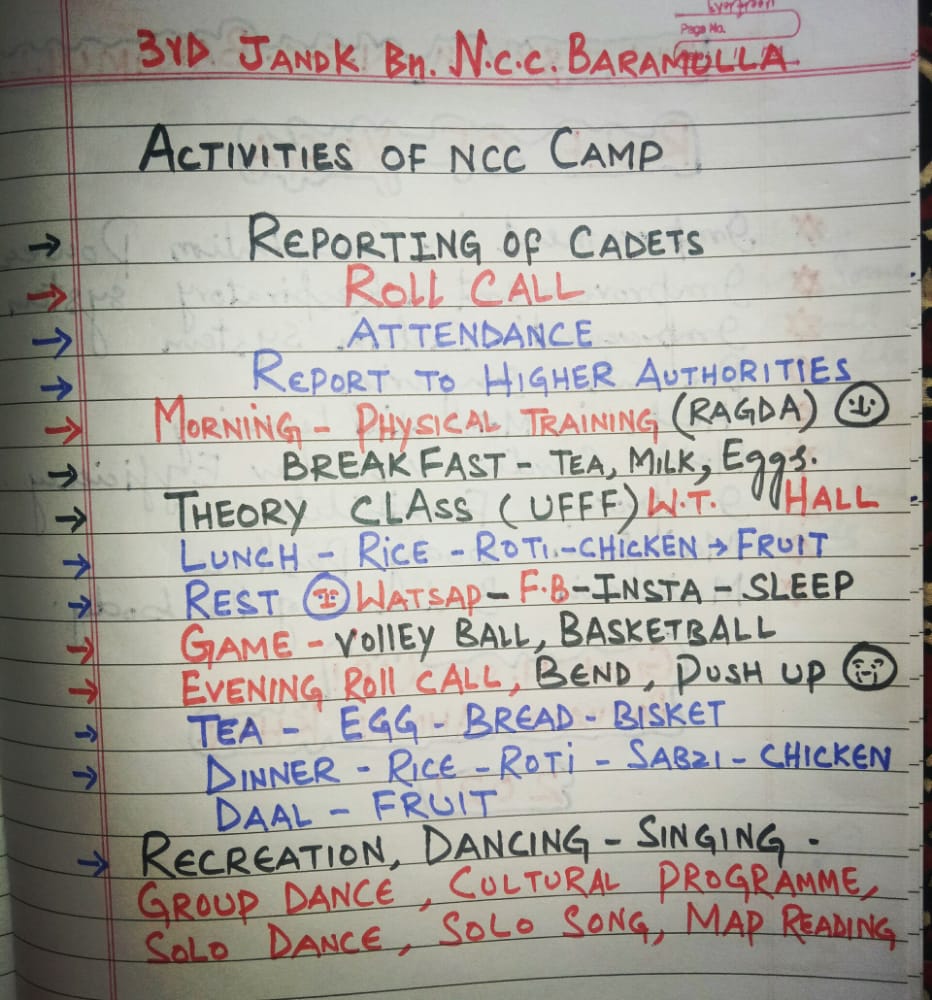 Evergreen
Page No.
3YD JANDK Bn. N.C.C. BARAMULLA
ACTIVITIES OF NCC CAMP
→ REPORTING OF CADETS
→ ROLL CALL
→ ATTENDANCE
→ REPORT TO HIGHER AUTHORITIES
→ MORNING - PHYSICAL TRAINING (RAGDA)
→ BREAKFAST - TEA, MILK, Eggs.
→ THEORY CLASS (UFFF) W.T. HALL
→ LUNCH - RICE - ROTI - CHICKEN → FRUIT
→ REST WATSAP - F.B - INSTA - SLEEP
→ GAME - VOLLEY BALL, BASKETBALL
→ EVENING ROLL CALL, BEND, PUSH UP
→ TEA - EGG - BREAD - BISKET
→ DINNER - RICE - ROTI - SABZI - CHICKEN
DAAL - FRUIT
→ RECREATION, DANCING - SINGING -
GROUP DANCE, CULTURAL PROGRAMME,
SOLO DANCE, SOLO SONG, MAP READING